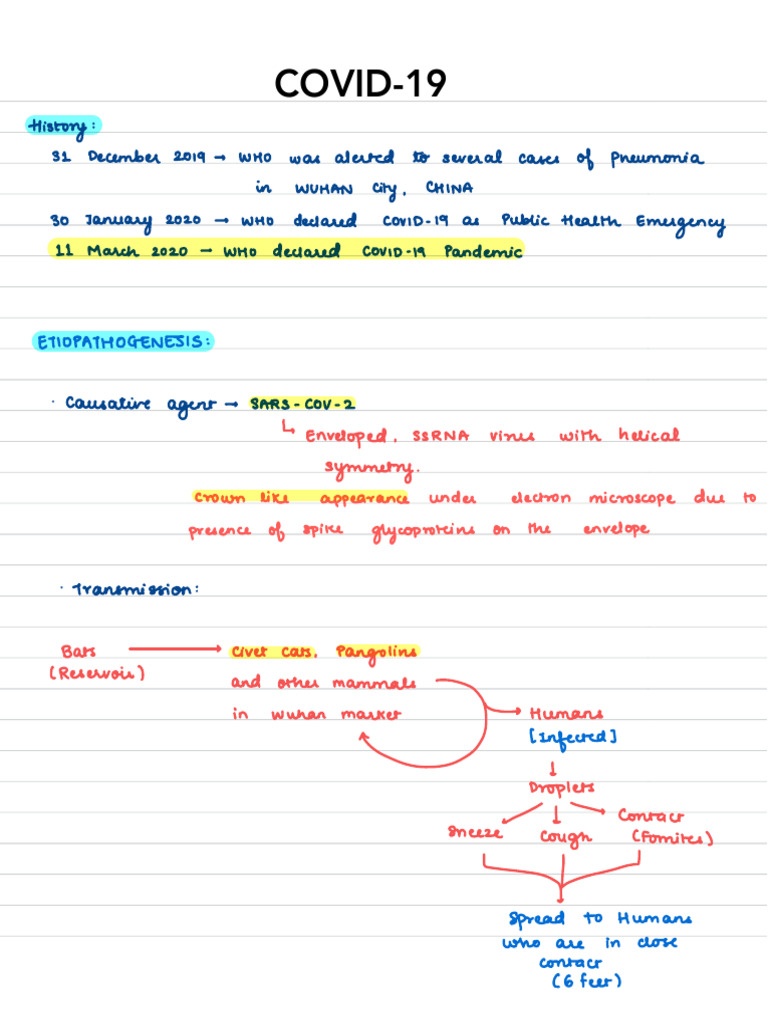 COVID-19
History:
31 December 2019 → WHO was alerted to several cases of pneumonia
in WUHAN City, CHINA
30 January 2020 → WHO declared COVID-19 as Public Health Emergency
11 March 2020 → WHO declared COVID-19 Pandemic
ETIOPATHOGENESIS:
· Causative agent → SARS-COV-2
↳ Enveloped, SSRNA virus with helical
symmetry.
Crown like appearance under electron microscope due to
presence of spike glycoproteins on the envelope
· Transmission:
Bats → Civet Cats, Pangolins
(Reservoir)
and other mammals
in wuhan market → Humans
[Infected]
↓
Droplets
Sneeze Cough Contact
(Fomites)
Spread to Humans
who are in close
contact
(6 feet)